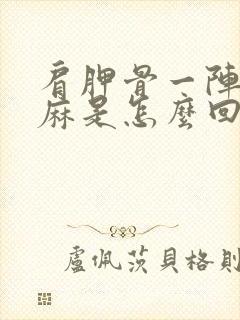 肩胛骨一陣
麻是怎麼回
盧佩茨貝格則